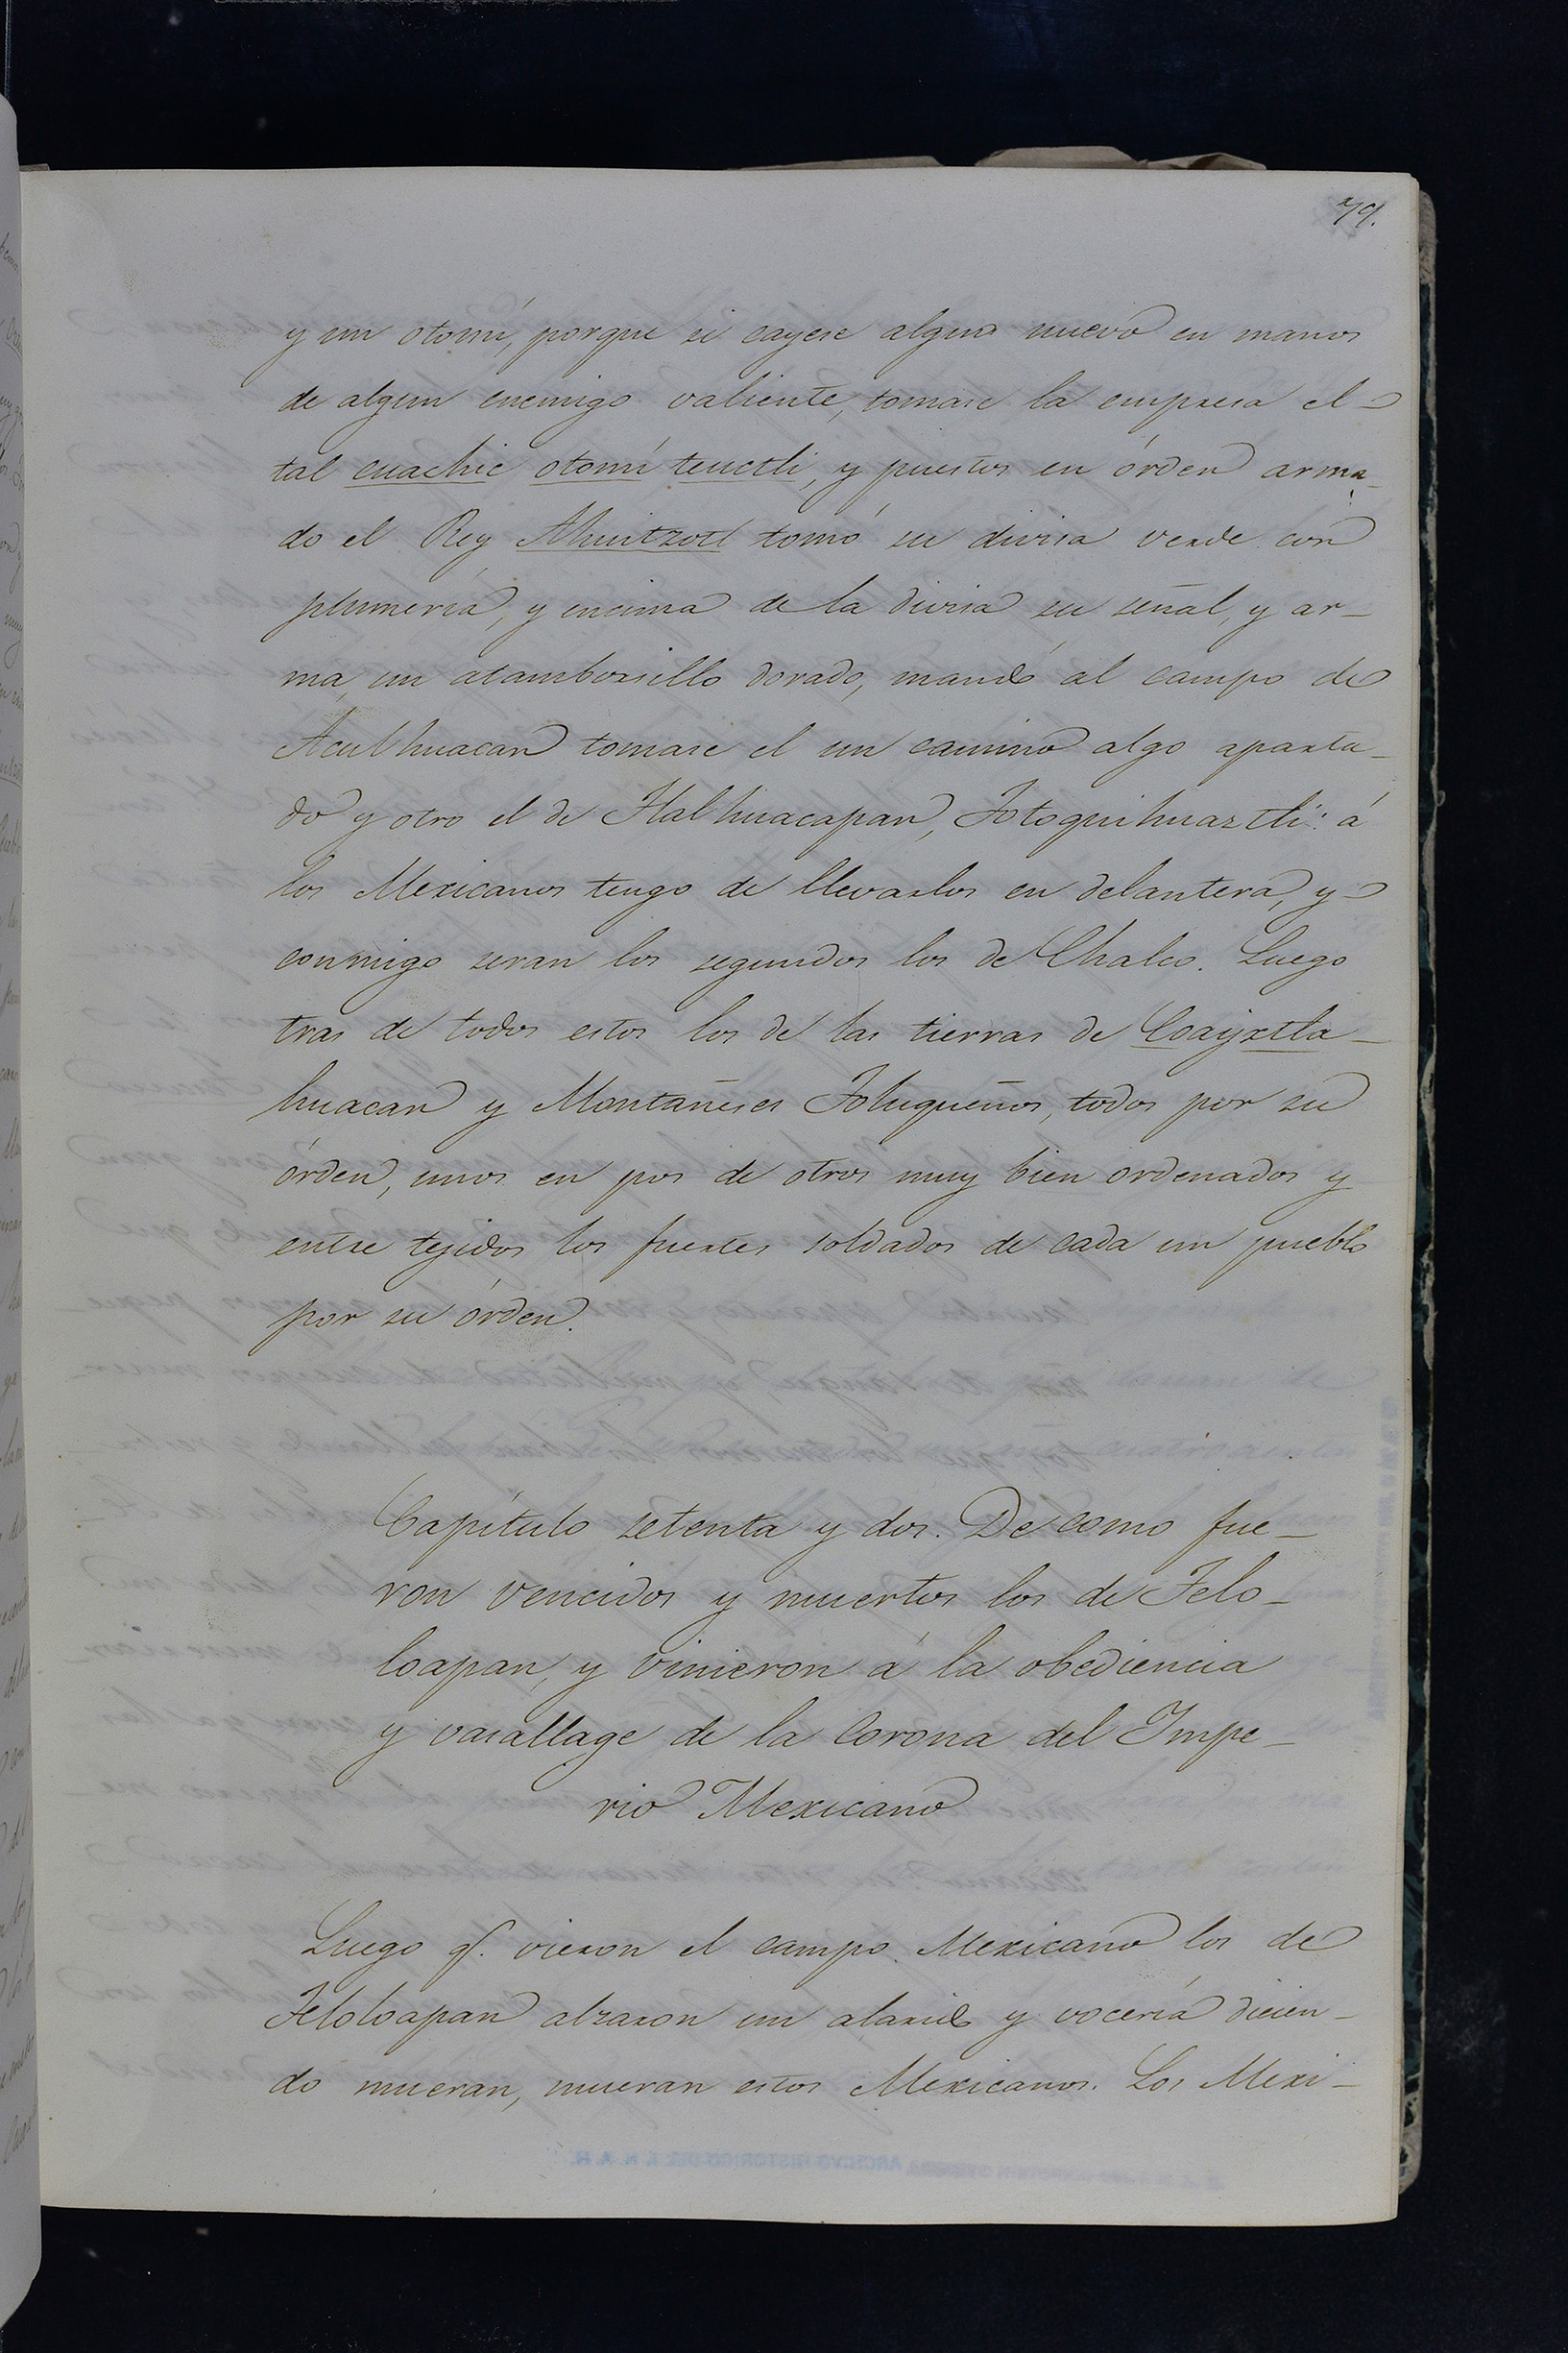 79.
y un otomí, porque si cayese alguno nuevo en manos
de algun enemigo valiente, tomase la empresa el
tal cuachic otomí teuctli, y puestos en órden arma-
do el Rey Ahuitzotl tomó su divisa verde con
plumería, y encima de la divisa su señal, y ar-
ma, un atamborsillo dorado, mandó al campo de
Aculhuacan tomase el un camino algo aparta-
do y otro el de Tlalhuacapan, Totoquihuaztli: á
los Mexicanos tengo de llevarlos en delantera, y
conmigo seran los segundos los de Chalco. Luego
tras de todos estos los de las tierras de Coayxtla-
huacan y Montañeses Toluqueños, todos por su
órden, unos en pos de otros muy bien ordenados y
entre tejidos los fuertes soldados de cada un pueblo
por su órden.
Capítulo setenta y dos. De como fue-
ron vencidos y muertos los de Telo-
loapan, y vinieron á la obediencia
y vasallage de la Corona del Impe-
rio Mexicano
Luego q.̃ vieron el campo Mexicano los de
Teloloapan alzaron un alarido y vocería dicien-
do mueran, mueran estos Mexicanos. Los Mexi-
ARCHIVO HISTORICO DEL I. N. A. H.